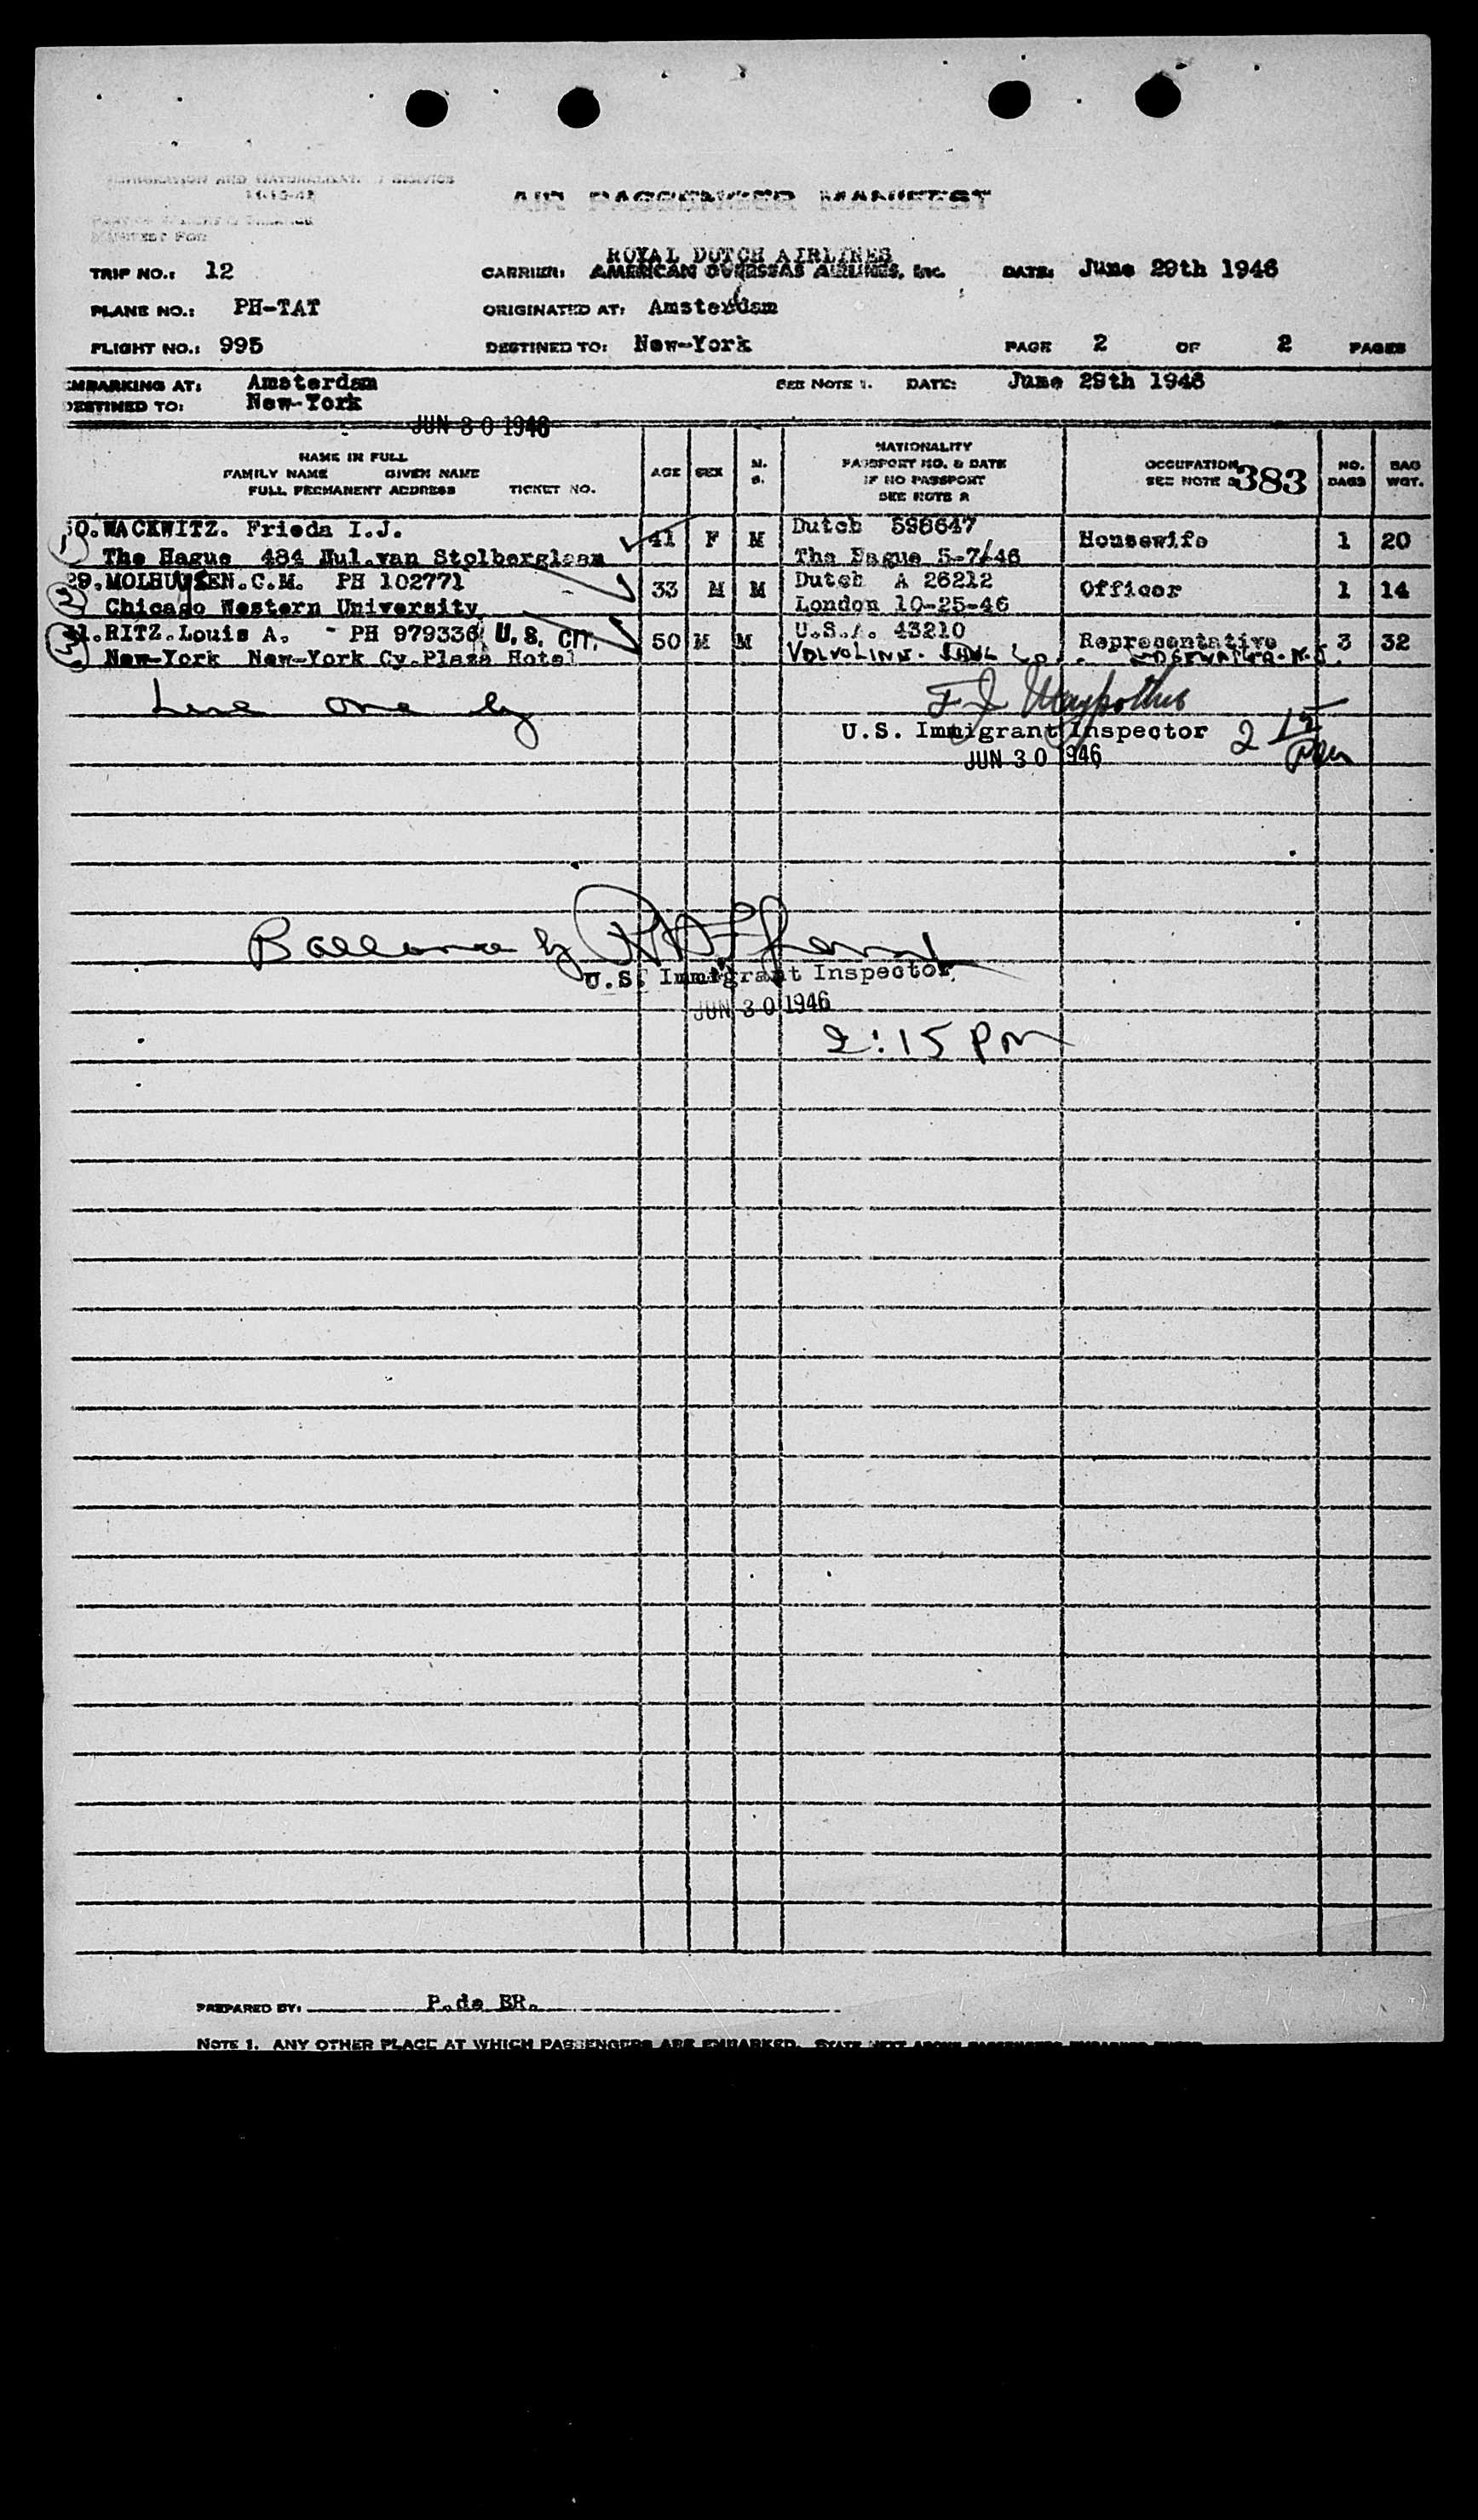 IMMIGRATION AND NATURALIZATION SERVICE
11-13-42
MANIFEST FOR
AIR PASSENGER MANIFEST
TRIP NO.: 12 CARRIER: ROYAL DUTCH AIRLINES AMERICAN OVERSEAS AIRLINES, Inc. DATE: June 29th 1946
PLANE NO.: PH-TAT ORIGINATED AT: Amsterdam
FLIGHT NO.: 995 DESTINED TO: New-York PAGE 2 OF 2 PAGES
EMBARKING AT: Amsterdam SEE NOTE 1. DATE: June 29th 1946
DESTINED TO: New-York
JUN 30 1946
NAME IN FULL
FAMILY NAME GIVEN NAME
FULL PERMANENT ADDRESS TICKET NO.
AGE SEX M. S.
NATIONALITY
PASSPORT NO. & DATE
IF NO PASSPORT
SEE NOTE 2
OCCUPATION
SEE NOTE 3
383
NO. BAGS
BAG WGT.
30.WACKWITZ. Frieda I.J. 41 F M Dutch 598647 Housewife 1 20
1 The Hague 484 Jul.van Stolberglaan The Hague 5-7/46
29.MOLHUYSEN.C.M. PH 102771 33 M M Dutch A 26212 Officer 1 14
2 Chicago Western University London 10-25-46
31.RITZ.Louis A. - PH 979336 U.S. CIT. 50 M M U.S.A. 43210 Representative 3 32
3 New-York New-York Cy.Plaza Hotel
Line one by
U.S. Immigrant Inspector 2 15 pm
JUN 30 1946
Ballance by
U.S. Immigrant Inspector
JUN 30 1946
2:15 PM
PREPARED BY: P.de BR.
NOTE 1. ANY OTHER PLACE AT WHICH PASSENGERS ARE EMBARKED.